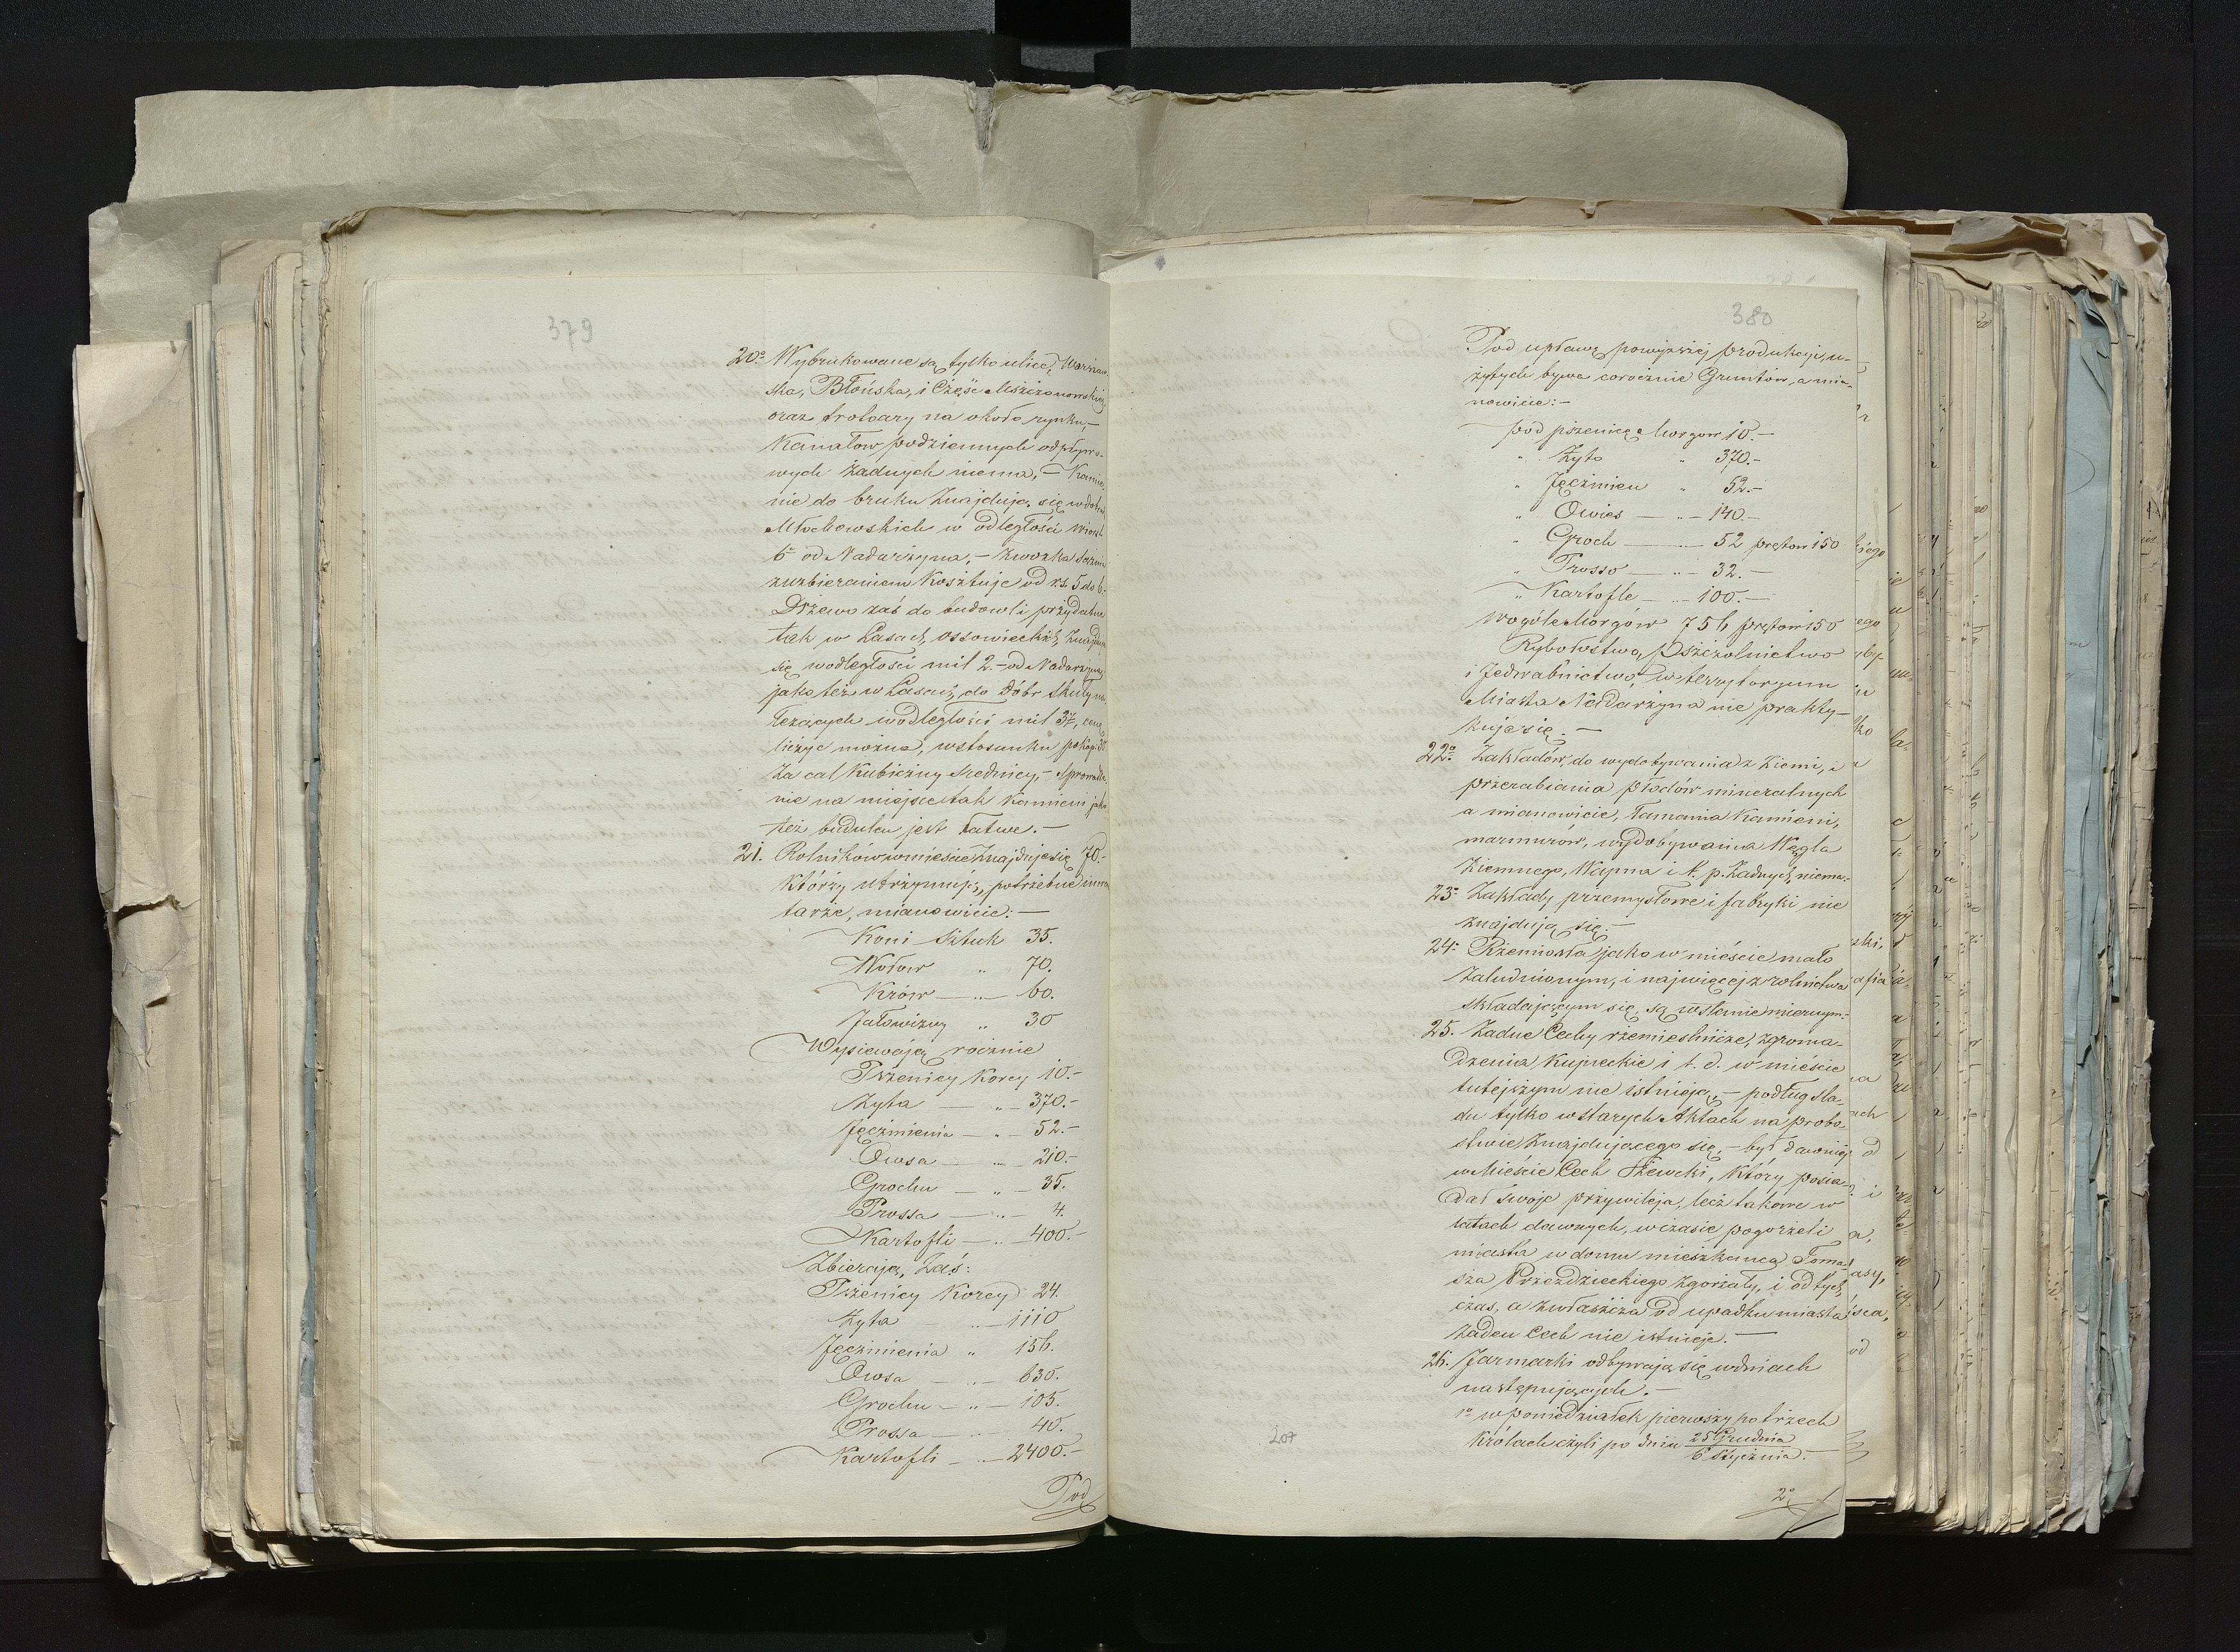 379
20º Wybrukowane są tylko ulice, Warszaw-
ska, Błońska, i Część Mszczonowskiej,
oraz trotoary na około rynku,-
Kanałow podziemnych odpływo-
wych żadnych niema,- Kamie-
nie do bruku znajdują się w dobrach
Młochowskich w odległości wiorst
6 od Nadarzyna,- zwozka sążnia
zuzbieraniem Kosztuje od rs. 5 do 6.-
Drzewo zaś do budowli przydatne
tak w Lasach ossowieckich znajduje
się wodległości mil 2.- od Nadarzyna,
jako też w Lasach do dóbr Skuły na-
leżących wodległości mil 3½, cenę
liczyć można, wstosunku po kop: 35
za cal Kubiczny średnicy,- Sprowadze-
nie na miejsce tak Kamieni jako
też budulcu jest łatwe.-
21. Rolników wmieście znajduje się 70.-
Którzy utrzymują, potrzebne inwen-
tarze, mianowicie:-
Koni Sztuk 35.
Wołow " 70.
Krów — " — 60.
Jałowizny " 30
Wysiewają rocznie
Pszenicy Korcy 10.-
Żyta — " — 370.-
Jęczmienia — " — 52.-
Owsa — " — 210.-
Grochu — " — 35.
Prossa — " — 4.
Kartofli — " — 400.-
Zbierają, Zaś:
Pszenicy Korcy 24.
Żyta — " — 1110
Jęczmienia " 156.
Owsa — " — 630.
Grochu — " — 105.
Prossa — " — 40.
Kartofli — " — 2400.-
Pod
380
Pod uprawę powyższej produkcyi, u-
żytych bywa corocznie Gruntów, a mia-
nowicie:-
pod pszenicę Morgow 10.-
" Żyto " 370.-
" Jęczmien " 52.-
" Owies — " — 140.-
" Groch — " — 52 prętow 150
" Prosso — " — 32.-
" Kartofle — " — 100.-
wogóle Morgów 756 prętow 150
Rybołostwo, Pszczolnictwo
i Jedwabnictwo, w terrytoryum
Miasta Nadarzyna nie prakty-
kuje się.-
22º Zakładów do wydobywania z Ziemi, i
przerabiania płodów mineralnych
a mianowicie, łamania Kamieni,
marmurów, wydobywania Węgla
Ziemnego, Wapna i t. p. Żadnych niema.-
23º Zakłady przemysłowe i fabryki nie
znajdują się.-
24º Rzemiosła jako w mieście mało
Zaludnionym, i najwięcej z rolnictwa
składającym się, są w stanie miernym.-
25. Żadne Cechy rzemieslnicze, zgroma-
dzenia Kupieckie i t. d. w mieście
tutejszym nie istnieją,- podług śla-
du tylko w starych Aktach na probo-
stwie znajdującego się,- był dawniej
w Mieście Cech Szewcki, Który posia-
dał swoje przywileja, lecz takowe w
latach dawnych, w czasie pogorzeli
miasta w domu mieszkanca Toma-
sza Przezdzieckiego zgorzały, i od tych
czas, a zwłaszcza od upadku miasta
żaden Cech nie istnieje.-
26. Jarmarki odbywają się w dniach
następujących.-
1º w poniedziałek pierwszy po trzech
Królach czyli po dniu 25 Grudnia
6 Stycznia.-
2º
207